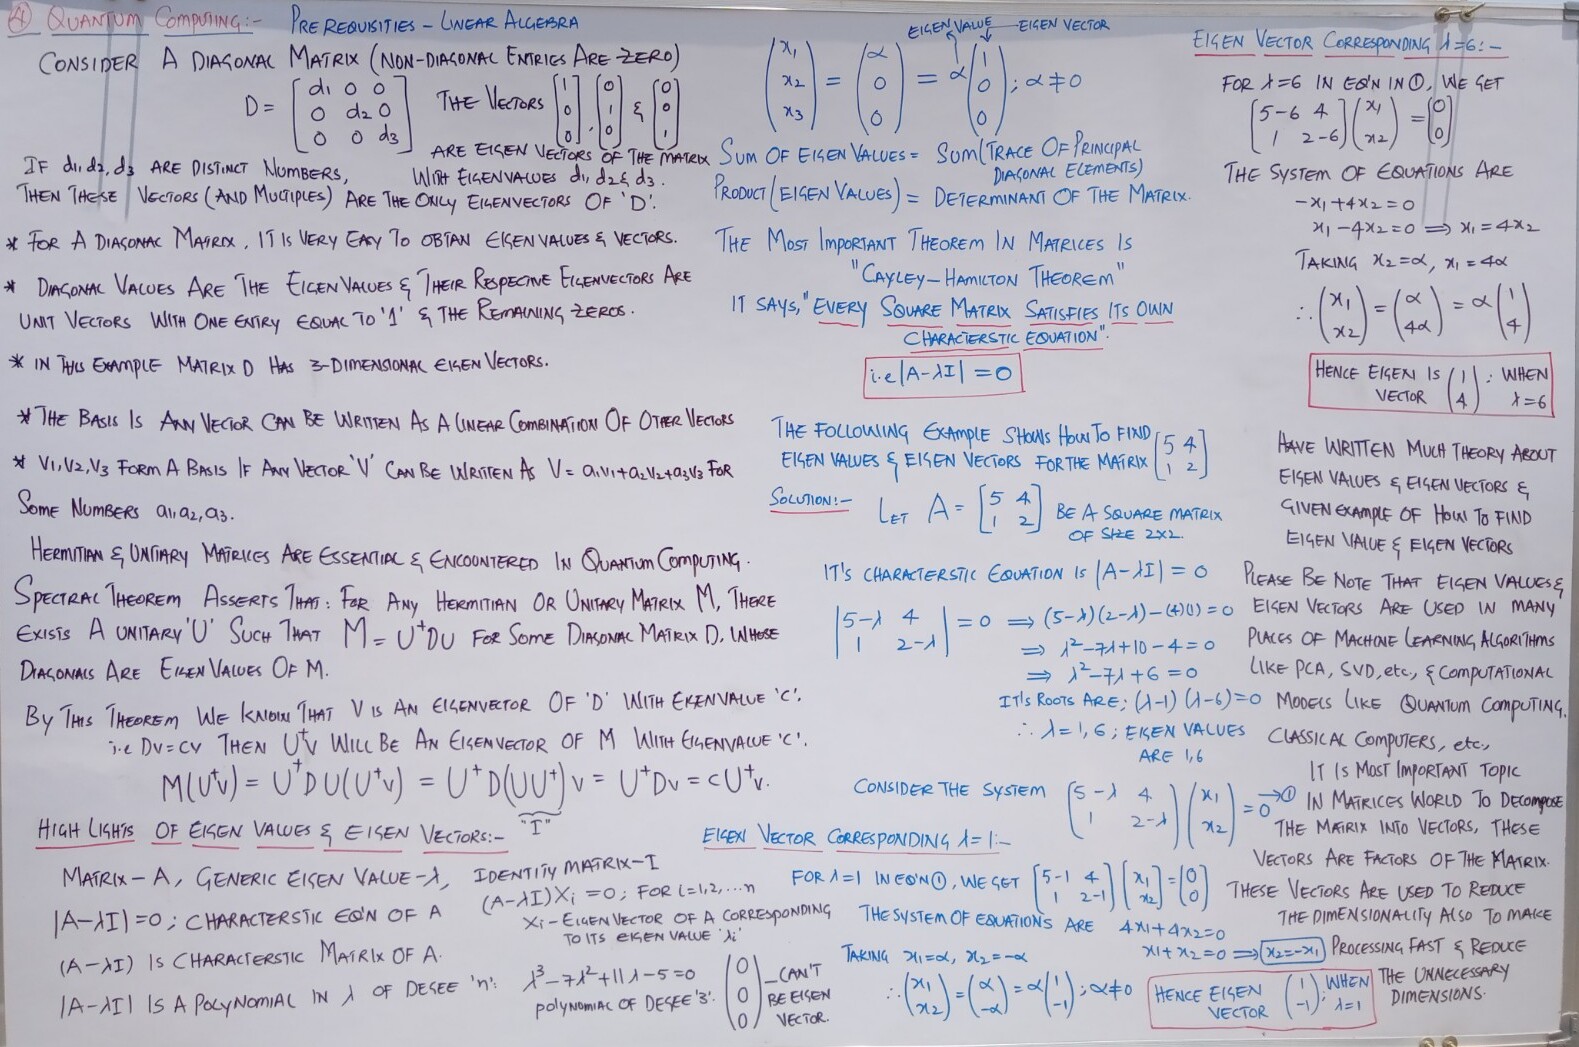 ④ QUANTUM COMPUTING:- PREREQUISITIES - LINEAR ALGEBRA
CONSIDER A DIAGONAL MATRIX (NON-DIAGONAL ENTRIES ARE ZERO)
D = [d1 0 0
0 d2 0
0 0 d3]
THE VECTORS [1 0 0], [0 1 0] & [0 0 1]
ARE EIGEN VECTORS OF THE MATRIX
WITH EIGENVALUES d1, d2 & d3.
IF d1, d2, d3 ARE DISTINCT NUMBERS,
THEN THESE VECTORS (AND MULTIPLES) ARE THE ONLY EIGENVECTORS OF 'D'.
* FOR A DIAGONAL MATRIX, IT IS VERY EASY TO OBTAN EIGEN VALUES & VECTORS.
* DIAGONAL VALUES ARE THE EIGEN VALUES & THEIR RESPECTIVE EIGENVECTORS ARE
UNIT VECTORS WITH ONE ENTRY EQUAL TO '1' & THE REMAINING ZEROS.
* IN THIS EXAMPLE MATRIX D HAS 3-DIMENSIONAL EIGEN VECTORS.
* THE BASIS IS ANY VECTOR CAN BE WRITTEN AS A LINEAR COMBINATION OF OTHER VECTORS
* V1, V2, V3 FORM A BASIS IF ANY VECTOR 'V' CAN BE WRITTEN AS V = a1v1+a2v2+a3v3 FOR
SOME NUMBERS a1, a2, a3.
HERMITIAN & UNTIARY MATRICES ARE ESSENTIAL & ENCOUNTERED IN QUANTUM COMPUTING.
SPECTRAL THEOREM ASSERTS THAT: FOR ANY HERMITIAN OR UNITARY MATRIX M, THERE
EXISTS A UNITARY 'U' SUCH THAT M = U†DU FOR SOME DIAGONAL MATRIX D, WHOSE
DIAGONALS ARE EIGEN VALUES OF M.
BY THIS THEOREM WE KNOW THAT V IS AN EIGENVECTOR OF 'D' WITH EIGENVALUE 'C'.
i.e Dv=cv THEN U†v WILL BE AN EIGENVECTOR OF M WITH EIGENVALUE 'C'.
M(U†v) = U†DU(U†v) = U†D(UU†)v = U†Dv = cU†v.
"I"
HIGH LIGHTS OF EIGEN VALUES & EIGEN VECTORS:-
MATRIX - A, GENERIC EIGEN VALUE - λ, IDENTITY MATRIX - I
|A-λI| = 0; CHARACTERSTIC EQ'N OF A
(A-λI)Xi = 0; FOR i=1,2,...n
Xi - EIGENVECTOR OF A CORRESPONDING
TO ITS EIGEN VALUE 'λi'
(A-λI) IS CHARACTERSTIC MATRIX OF A.
|A-λI| IS A POLYNOMIAL IN λ OF DEGEE 'n':
λ³-7λ²+11λ-5=0
POLYNOMIAL OF DEGEE '3'.
(0 0 0) - CAN'T
BE EIGEN
VECTOR.
EIGEN VALUE EIGEN VECTOR
(x1 x2 x3) = (α 0 0) = α(1 0 0); α≠0
SUM OF EIGEN VALUES = SUM(TRACE OF PRINCIPAL
DIAGONAL ELEMENTS)
PRODUCT(EIGEN VALUES) = DETERMINANT OF THE MATRIX.
THE MOST IMPORTANT THEOREM IN MATRICES IS
"CAYLEY-HAMILTON THEOREM"
IT SAYS, "EVERY SQUARE MATRIX SATISFIES ITS OWN
CHARACTERSTIC EQUATION".
i.e |A-λI| = 0
THE FOLLOWING EXAMPLE SHOWS HOW TO FIND
EIGEN VALUES & EIGEN VECTORS FOR THE MATRIX [5 4
1 2]
SOLUTION:- LET A = [5 4
1 2] BE A SQUARE MATRIX
OF SIZE 2X2.
IT'S CHARACTERSTIC EQUATION IS |A-λI| = 0
|5-λ 4
1 2-λ| = 0 ⟹ (5-λ)(2-λ)-(4)(1) = 0
⟹ λ²-7λ+10-4=0
⟹ λ²-7λ+6=0
IT'S ROOTS ARE; (λ-1)(λ-6)=0
∴ λ=1,6; EIGEN VALUES
ARE 1,6
CONSIDER THE SYSTEM (5-λ 4
1 2-λ)(x1 x2) = 0 → ①
EIGEN VECTOR CORRESPONDING λ=1:-
FOR λ=1 IN EQ'N ①, WE GET [5-1 4
1 2-1][x1 x2] = (0 0)
THE SYSTEM OF EQUATIONS ARE 4x1+4x2=0
x1+x2=0 ⟹ x2=-x1
TAKING x1=α, x2=-α
∴ (x1 x2) = (α -α) = α(1 -1); α≠0
HENCE EIGEN VECTOR (1 -1); WHEN λ=1
EIGEN VECTOR CORRESPONDING λ=6:-
FOR λ=6 IN EQ'N IN ①, WE GET
[5-6 4
1 2-6](x1 x2) = (0 0)
THE SYSTEM OF EQUATIONS ARE
-x1+4x2=0
x1-4x2=0 ⟹ x1=4x2
TAKING x2=α, x1=4α
∴ (x1 x2) = (α 4α) = α(1 4)
HENCE EIGEN IS VECTOR (1 4): WHEN λ=6
HAVE WRITTEN MUCH THEORY ABOUT
EIGEN VALUES & EIGEN VECTORS &
GIVEN EXAMPLE OF HOW TO FIND
EIGEN VALUE & EIGEN VECTORS
PLEASE BE NOTE THAT EIGEN VALUES &
EIGEN VECTORS ARE USED IN MANY
PLACES OF MACHINE LEARNING ALGORITHMS
LIKE PCA, SVD, etc., & COMPUTATIONAL
MODELS LIKE QUANTUM COMPUTING,
CLASSICAL COMPUTERS, etc.,
IT IS MOST IMPORTANT TOPIC
IN MATRICES WORLD TO DECOMPOSE
THE MATRIX INTO VECTORS, THESE
VECTORS ARE FACTORS OF THE MATRIX.
THESE VECTORS ARE USED TO REDUCE
THE DIMENSIONALITY ALSO TO MAKE
PROCESSING FAST & REDUCE
THE UNNECESSARY
DIMENSIONS.